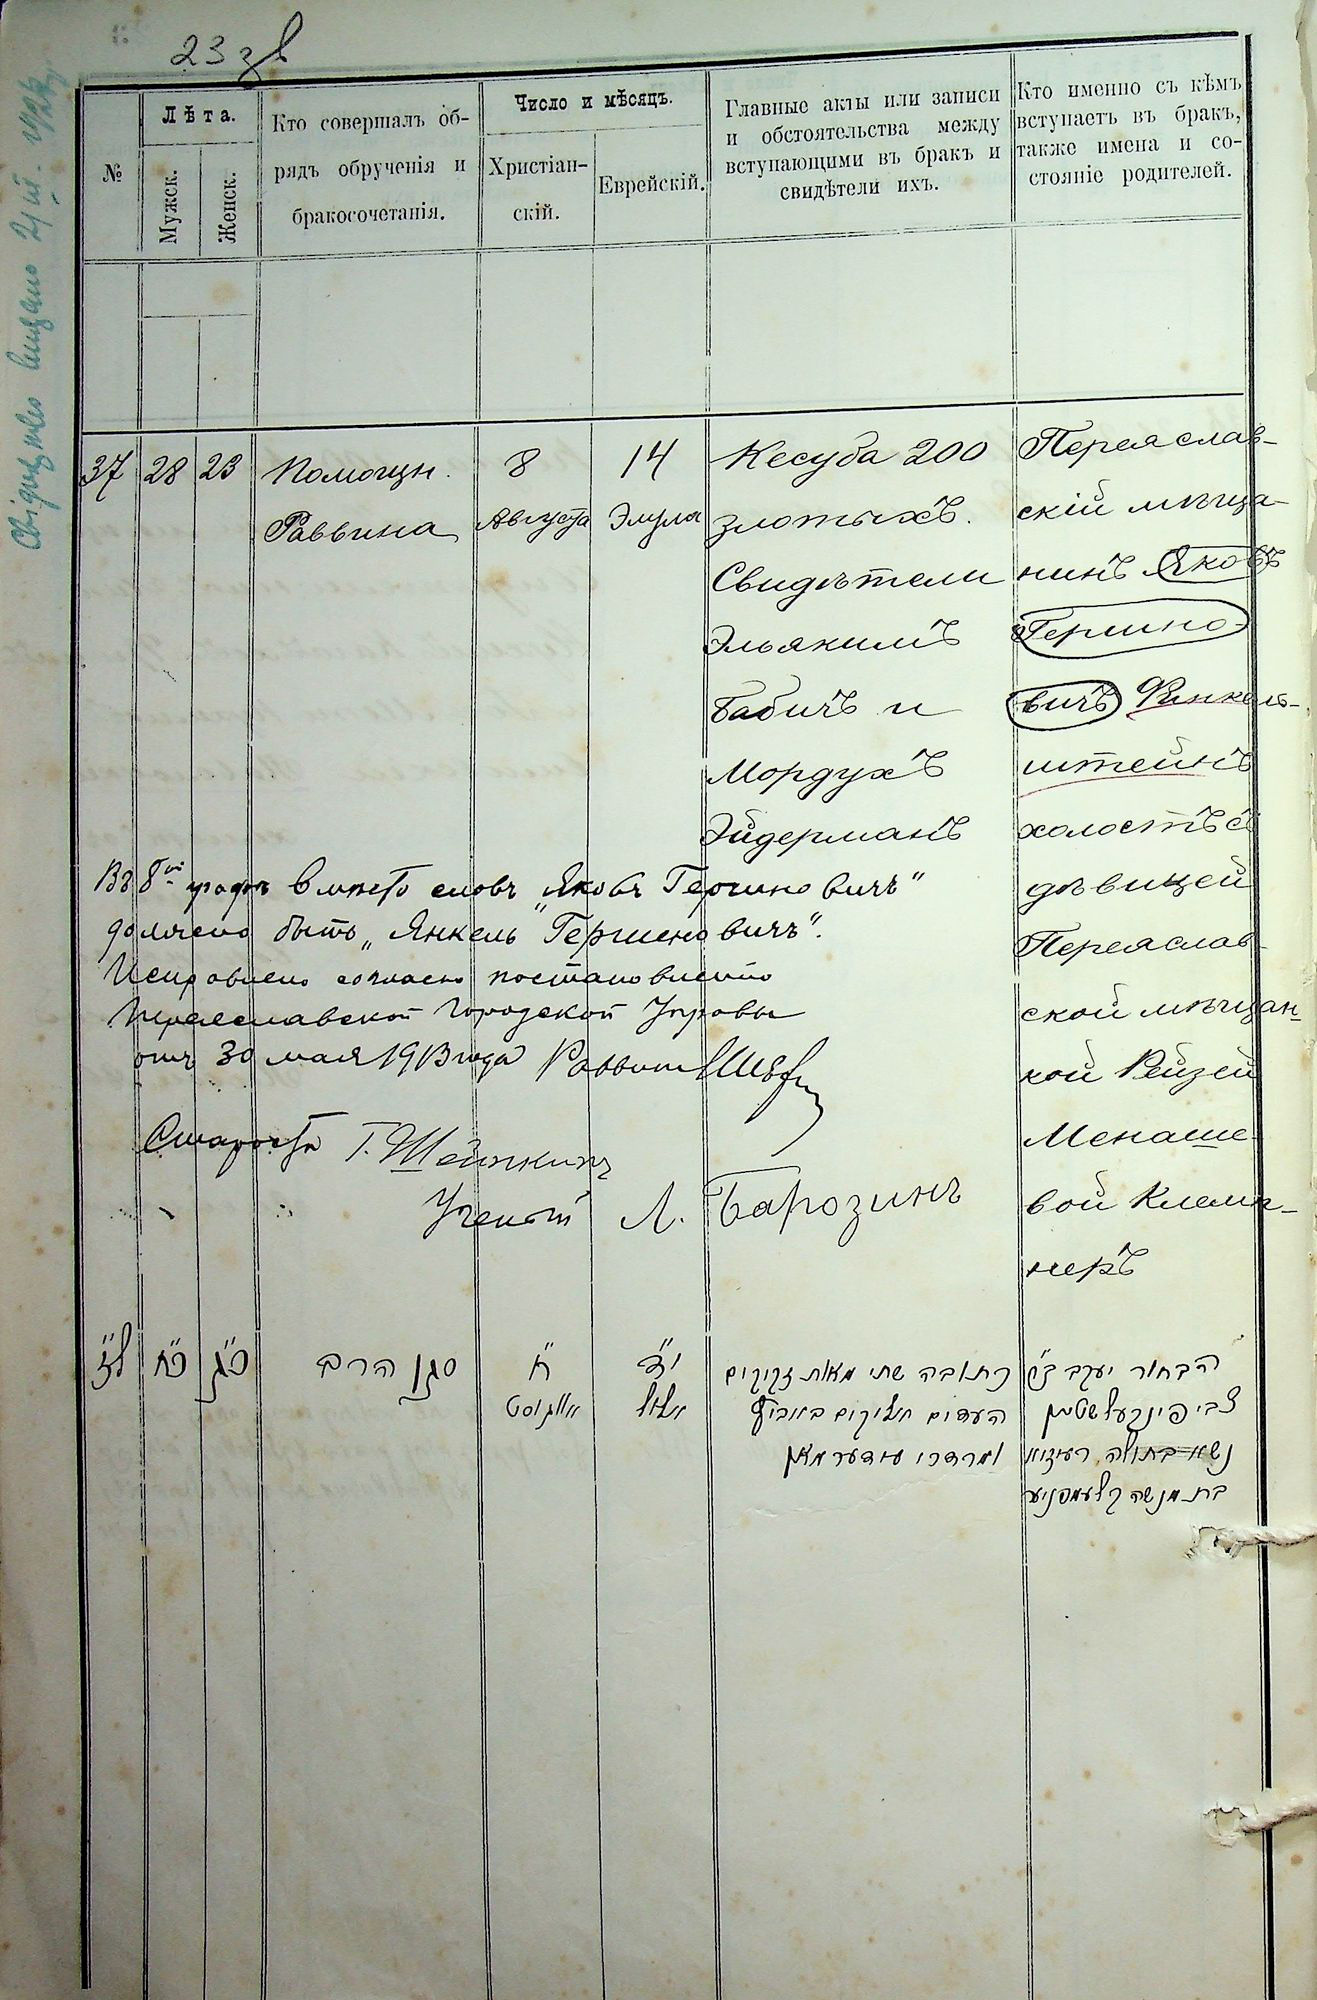 23 зв
№
Лѣта.
Мужск.
Женск.
Кто совершалъ об-
рядъ обрученія и
бракосочетанія.
Число и мѣсяцъ.
Христіан-
скій.
Еврейскій.
Главные акты или записи
и обстоятельства между
вступающими въ бракъ и
свидѣтели ихъ.
Кто именно съ кѣмъ
вступаетъ въ бракъ,
также имена и со-
стояніе родителей.
37
28
23
Помощн.
Раввина
8
Августа
14
Элула
Кесуба 200
злотыхъ.
Свидѣтели
Эльякимъ
Бабичъ и
Мордухъ
Эйдерманъ
Переяслав-
скій мѣща-
нинъ Яковъ
Гершино-
вичъ Финкель-
штейнъ
холостъ съ
дѣвицей
Переяслав-
ской мѣщан-
кой Рейзей
Менаше-
вой Клемп-
неръ
Въ 8ой графѣ вмѣсто словъ „Яковъ Гершиновичъ"
должно быть „Янкель Гершеновичъ".
Исправлено согласно постановленію
Переяславской Городской Управы
отъ 30 мая 1913 года Раввинъ
Староста Г. Шейнкинъ
Ученый Л. Барозинъ
ל״ז
כ״ח
כ״ג
סגן הרב
ח״
אווגוסט
י״ד
אלול
כתובה שתי מאות זקוקים
העדים אליקים באביץ
ומרדכי איידערמאן
הבחור יעקב ב״ר
צבי פינקעלשטיין
נשא בתולה רייזא
בת מנשה קלעמפנער